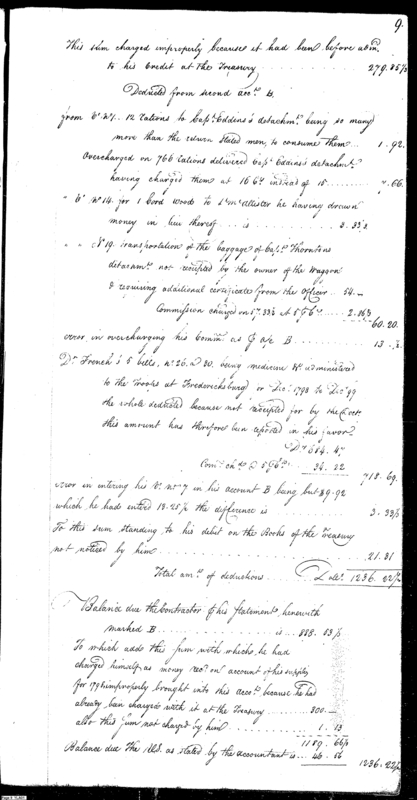 9.
This sum charged improperly because it had been before
to his Credit at the Treasury 279.85½
Deducted from second acct. B.
from Vo. No. 1. 12 rations to Capt. Eddens's detachmt. being so many
more than the return stated men, to consume them 1.92.
Overcharged on 766 rations delivered Capt. Eddens's detachmt.
having charged them at 16 Cts. instead of 15 7.66.
" Vo. No. 14. for 1 Cord wood to Lt. McAllister he having drawn
money in lieu thereof is 3.33⅓
" " No. 19. transportation of the baggage of Capt. Thorntons
detachmt. not receipted by the owner of the Waggon
& requiring additional certificate from the Officer 54.—
Commission charged on 57.33⅓ at 5 P Ct. 2.86⅔
60.20.
error in overchargeing his Commn. as P a/c B 13.
Dr. French's 5 bills, No. 26. a 30. being medicine &c. administered
to the troops at Fredericksburg or Dec. 1798 to Dec. 99
the whole deducted because not receipted for by the
this amount has therefore been reported in his favor.
Drs. 684.47
Comn. on do. @ 5 P Ct. 34.22
718.69.
error in entering his Vo. No. 7 in his account B being but 89.92
which he had entered 93.25½ the difference is 3.33½
To this sum standing to his debit on the Books of the Treasury
not noticed by him 21.31
Total amt. of deductions Dolls. 1236.22½
Balance due the Contractor P his Statement herewith
marked B is 888.53½
To which adds this sum with which he had
charged himself, as money recd. on account of his supplies
for 1799 improperly brought into this acct. because he had
already been charged with it at the Treasury 300.—
also this sum not charged by him 1.13
1189.66½
Balance due the U.S. as stated by the accountant is 46.56
1236.22½